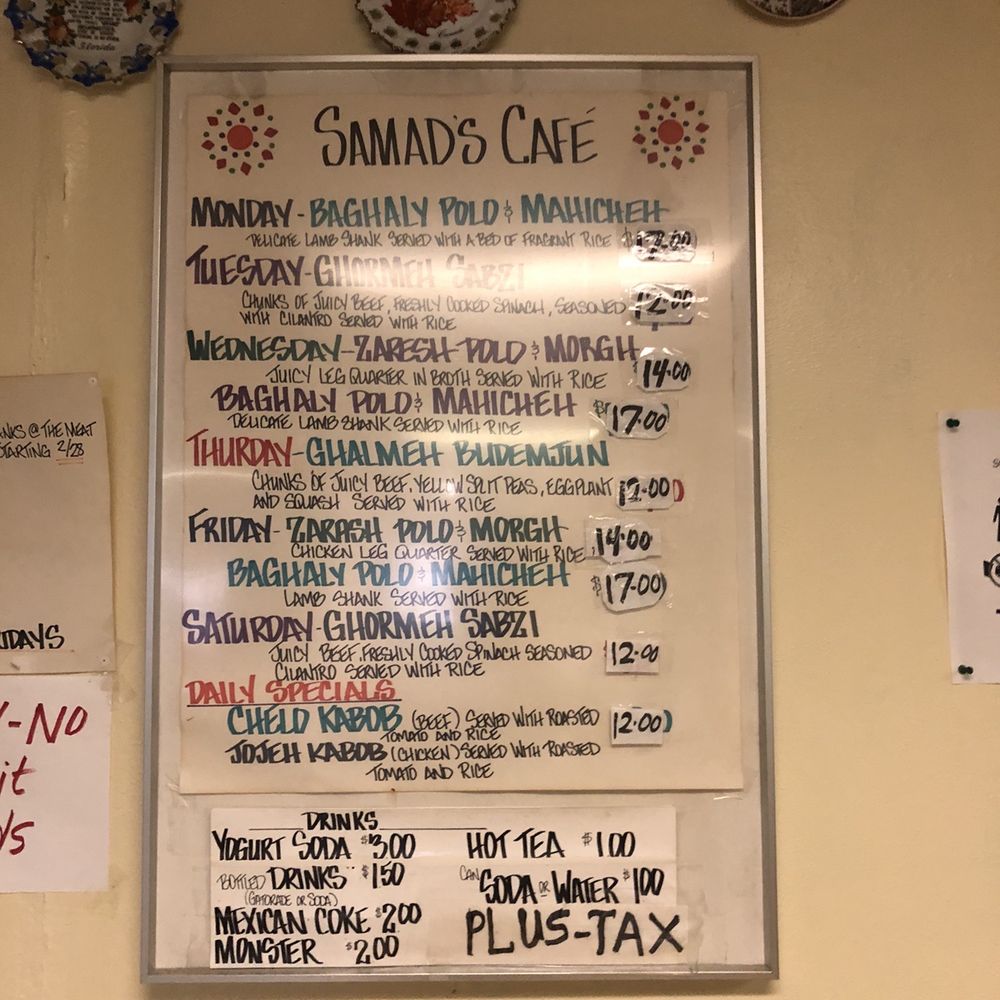 Florida
SAMAD'S CAFÉ
MONDAY - BAGHALY POLO & MAHICHEH
DELICATE LAMB SHANK SERVED WITH A BED OF FRAGRANT RICE $17.00
TUESDAY - GHORMEH SABZI
CHUNKS OF JUICY BEEF, FRESHLY COOKED SPINACH, SEASONED 12.00
WITH CILANTRO SERVED WITH RICE
WEDNESDAY - ZARESH POLO & MORGH
JUICY LEG QUARTER IN BROTH SERVED WITH RICE 14.00
BAGHALY POLO & MAHICHEH
DELICATE LAMB SHANK SERVED WITH RICE $17.00
THURDAY - GHALMEH BUDEMJUN
CHUNKS OF JUICY BEEF, YELLOW SPLIT PEAS, EGGPLANT 12.00
AND SQUASH SERVED WITH RICE
FRIDAY - ZARASH POLO & MORGH
CHICKEN LEG QUARTER SERVED WITH RICE 14.00
BAGHALY POLO & MAHICHEH
LAMB SHANK SERVED WITH RICE $17.00
SATURDAY - GHORMEH SABZI
JUICY BEEF, FRESHLY COOKED SPINACH SEASONED 12.00
CILANTRO SERVED WITH RICE
DAILY SPECIALS
CHELO KABOB (BEEF) SERVED WITH ROASTED 12.00
TOMATO AND RICE
JOJEH KABOB (CHICKEN) SERVED WITH ROASTED
TOMATO AND RICE
DRINKS
YOGURT SODA $3.00 HOT TEA $1.00
BOTTLED DRINKS $1.50 CAN SODA OR WATER $1.00
(GATORADE OR SODA)
MEXICAN COKE $2.00 PLUS-TAX
MONSTER $2.00
@ THE MEAT
STARTING 2/28
-NO